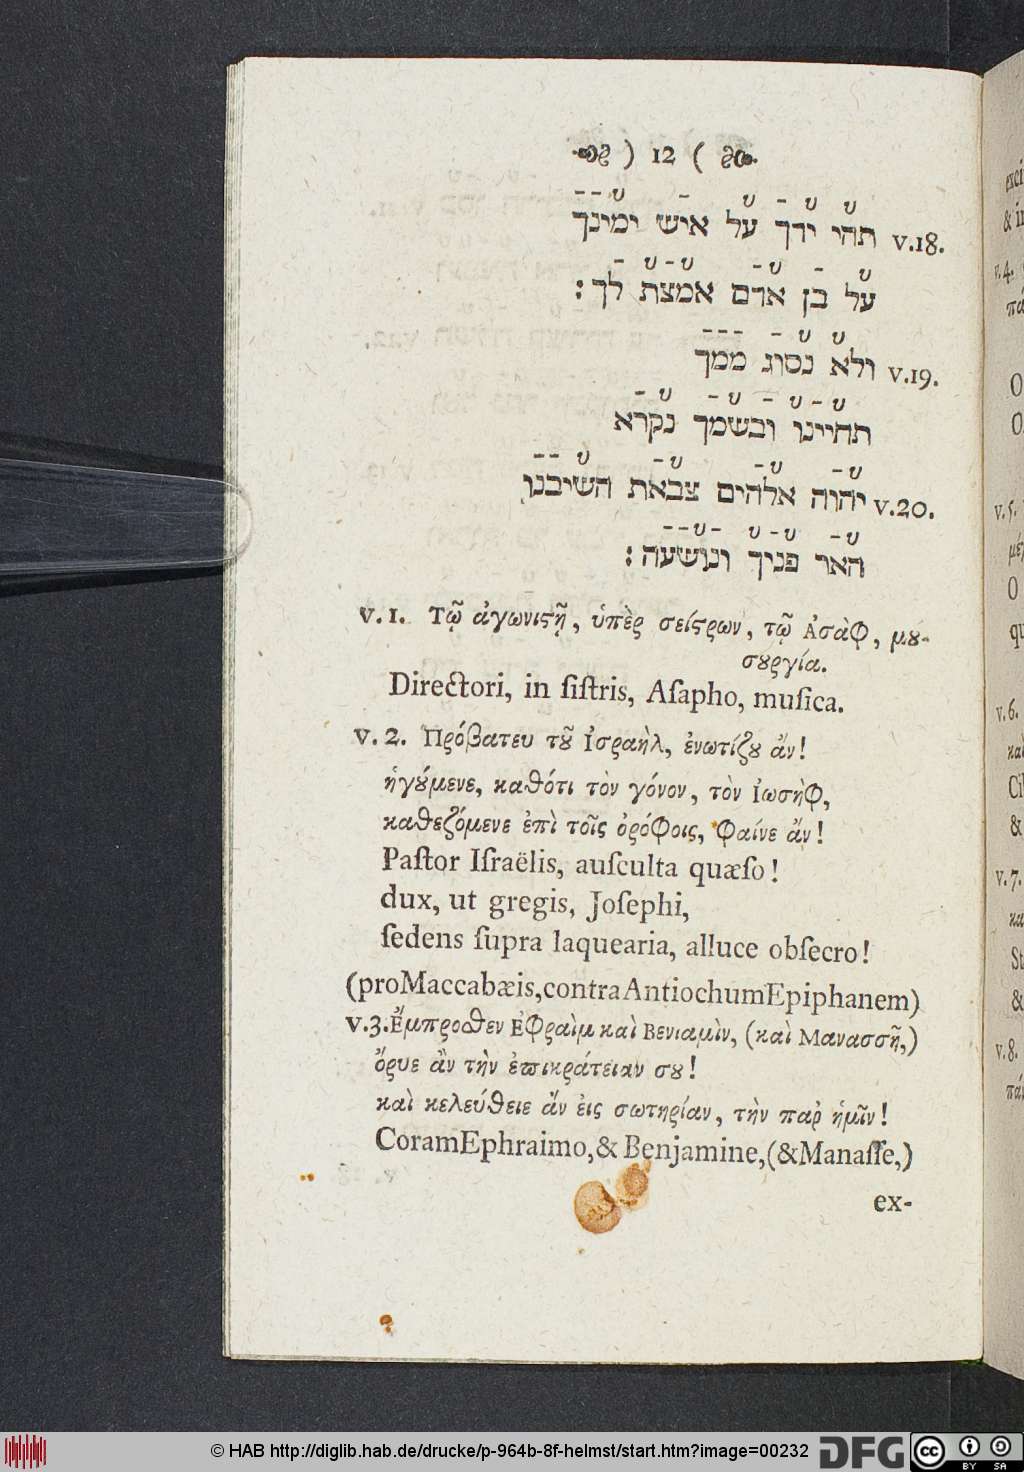 ) 12 (
תהי ידך על איש ימינך v.18.
על בן אדם אמצת לך :
ולא נסוג ממך v.19.
תחיינו ובשמך נקרא
יהוה אלהים צבאת השיבנו v.20.
האר פניך ונושעה :
v. 1. Τῷ ἀγωνιςῇ, ὑπὲρ σείςρων, τῷ Ἀσὰφ, μȣ-
σȣργία.
Directori, in ſiſtris, Aſapho, muſica.
v. 2. Πρόβατευ τȣ͂ Ἰσραὴλ, ἐνωτίζȣ ἄν!
ἡγȣ́μενε, καθότι τὸν γόνον, τὸν Ἰωσὴφ,
καθεζόμενε ἐπὶ τοῖς ὀρόφοις, φαίνε ἄν!
Paſtor Iſraëlis, auſculta quæſo!
dux, ut gregis, Joſephi,
ſedens ſupra laquearia, alluce obſecro!
(pro Maccabæis, contra Antiochum Epiphanem)
v.3. Ἔμπροσθεν Ἐφραὶμ καὶ Βενιαμὶν, (καὶ Μανασσῆ,)
ὄρυε ἂν τὴν ἐπικράτειαν σȣ!
καὶ κελεύθειε ἄν εἰς σωτηρίαν, τὴν παρ ἡμῖν!
Coram Ephraimo, & Benjamine, (& Manaſſe,)
ex-
© HAB http://diglib.hab.de/drucke/p-964b-8f-helmst/start.htm?image=00232 DFG cc BY SA